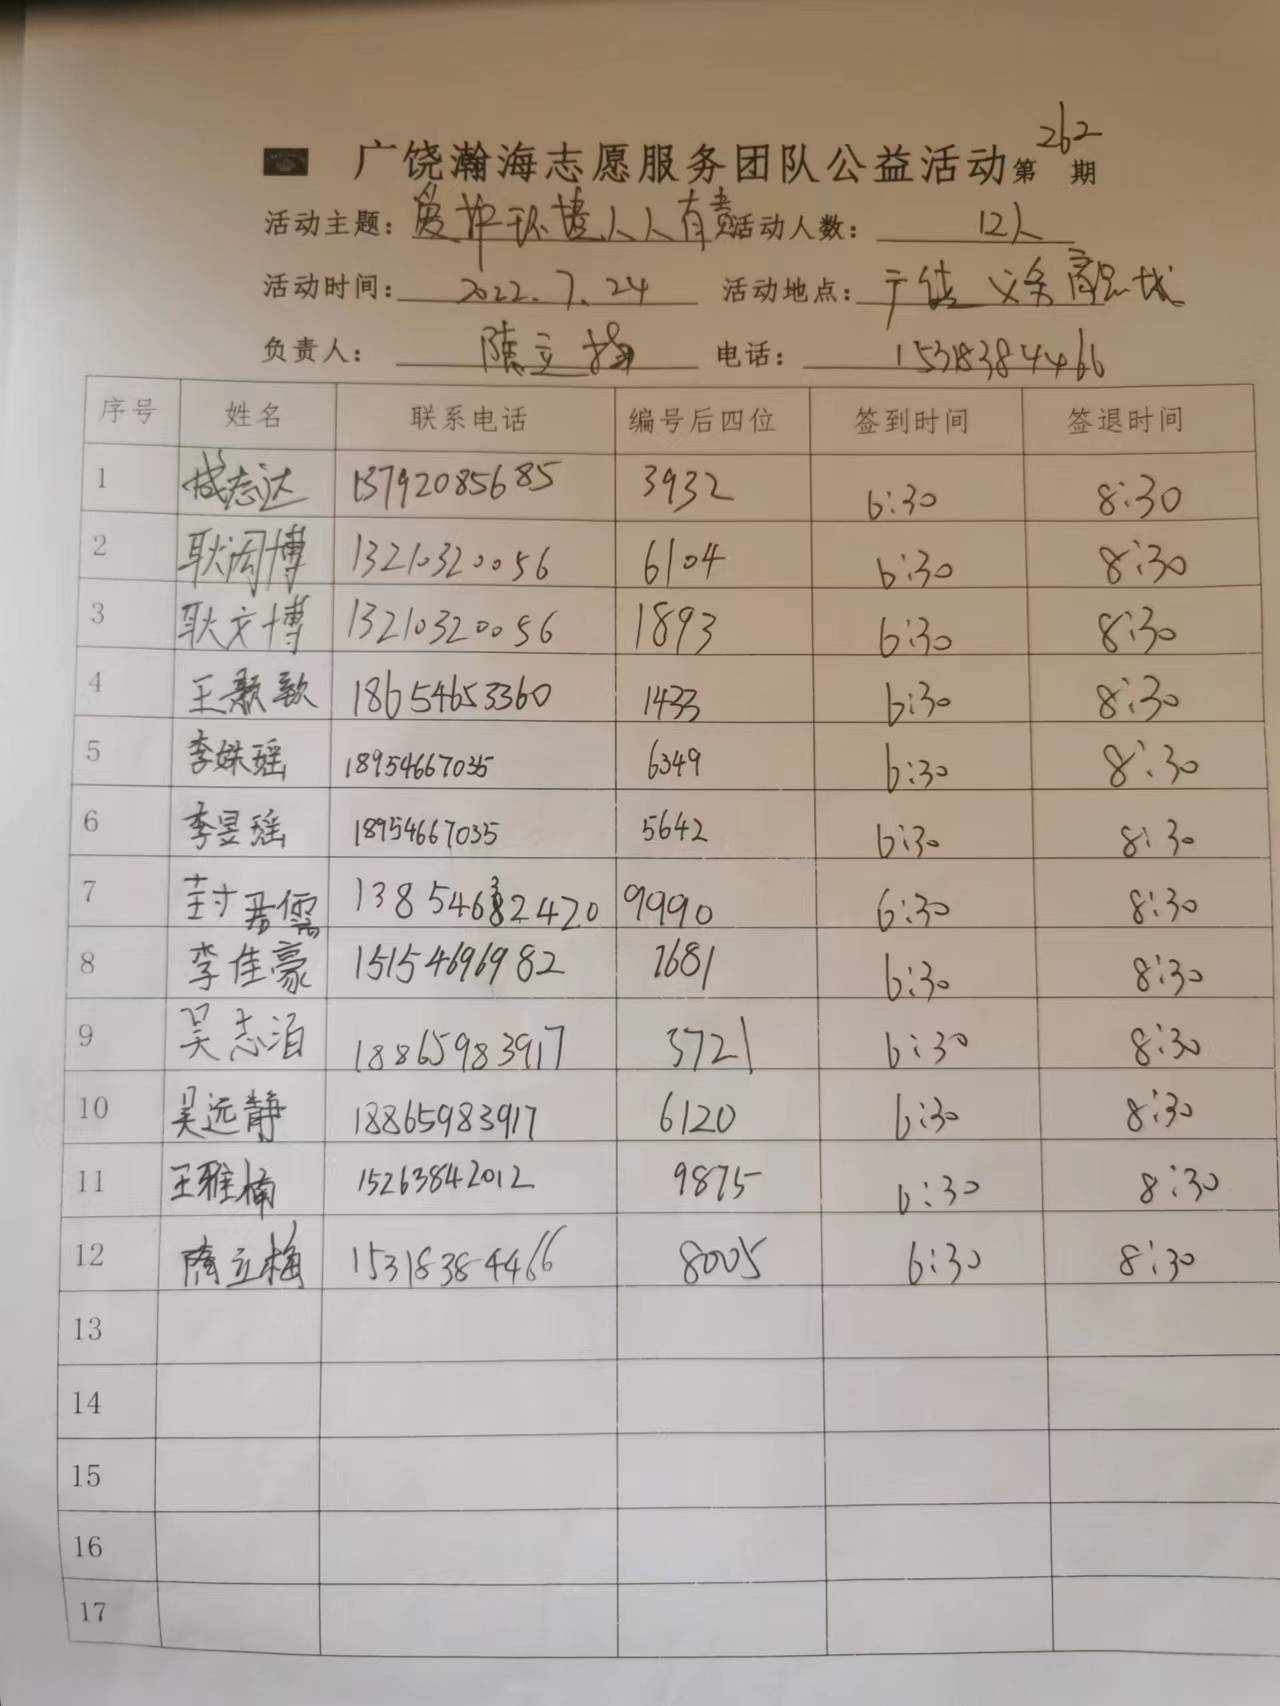 262
广饶瀚海志愿服务团队公益活动第 期
活动主题: 爱护环境人人有责 活动人数: 12人
活动时间: 2022.7.24 活动地点: 广饶义乌商品城
负责人: 隋立梅 电话: 15318384466
序号 姓名 联系电话 编号后四位 签到时间 签退时间
1 志达 13792085685 3932 6:30 8:30
2 耿闳博 13210320056 6104 6:30 8:30
3 耿文博 13210320056 1893 6:30 8:30
4 王歌歌 18654653360 1433 6:30 8:30
5 李姝瑶 18954667035 6349 6:30 8:30
6 李昱瑶 18954667035 5642 6:30 8:30
7 封君儒 9990 6:30 8:30
8 李佳豪 15154696982 1681 6:30 8:30
9 吴志泊 18865983917 3721 6:30 8:30
10 吴远静 18865983917 6120 6:30 8:30
11 王雅楠 15263842012 9875 6:30 8:30
12 隋立梅 15318384466 8005 6:30 8:30
13
14
15
16
17